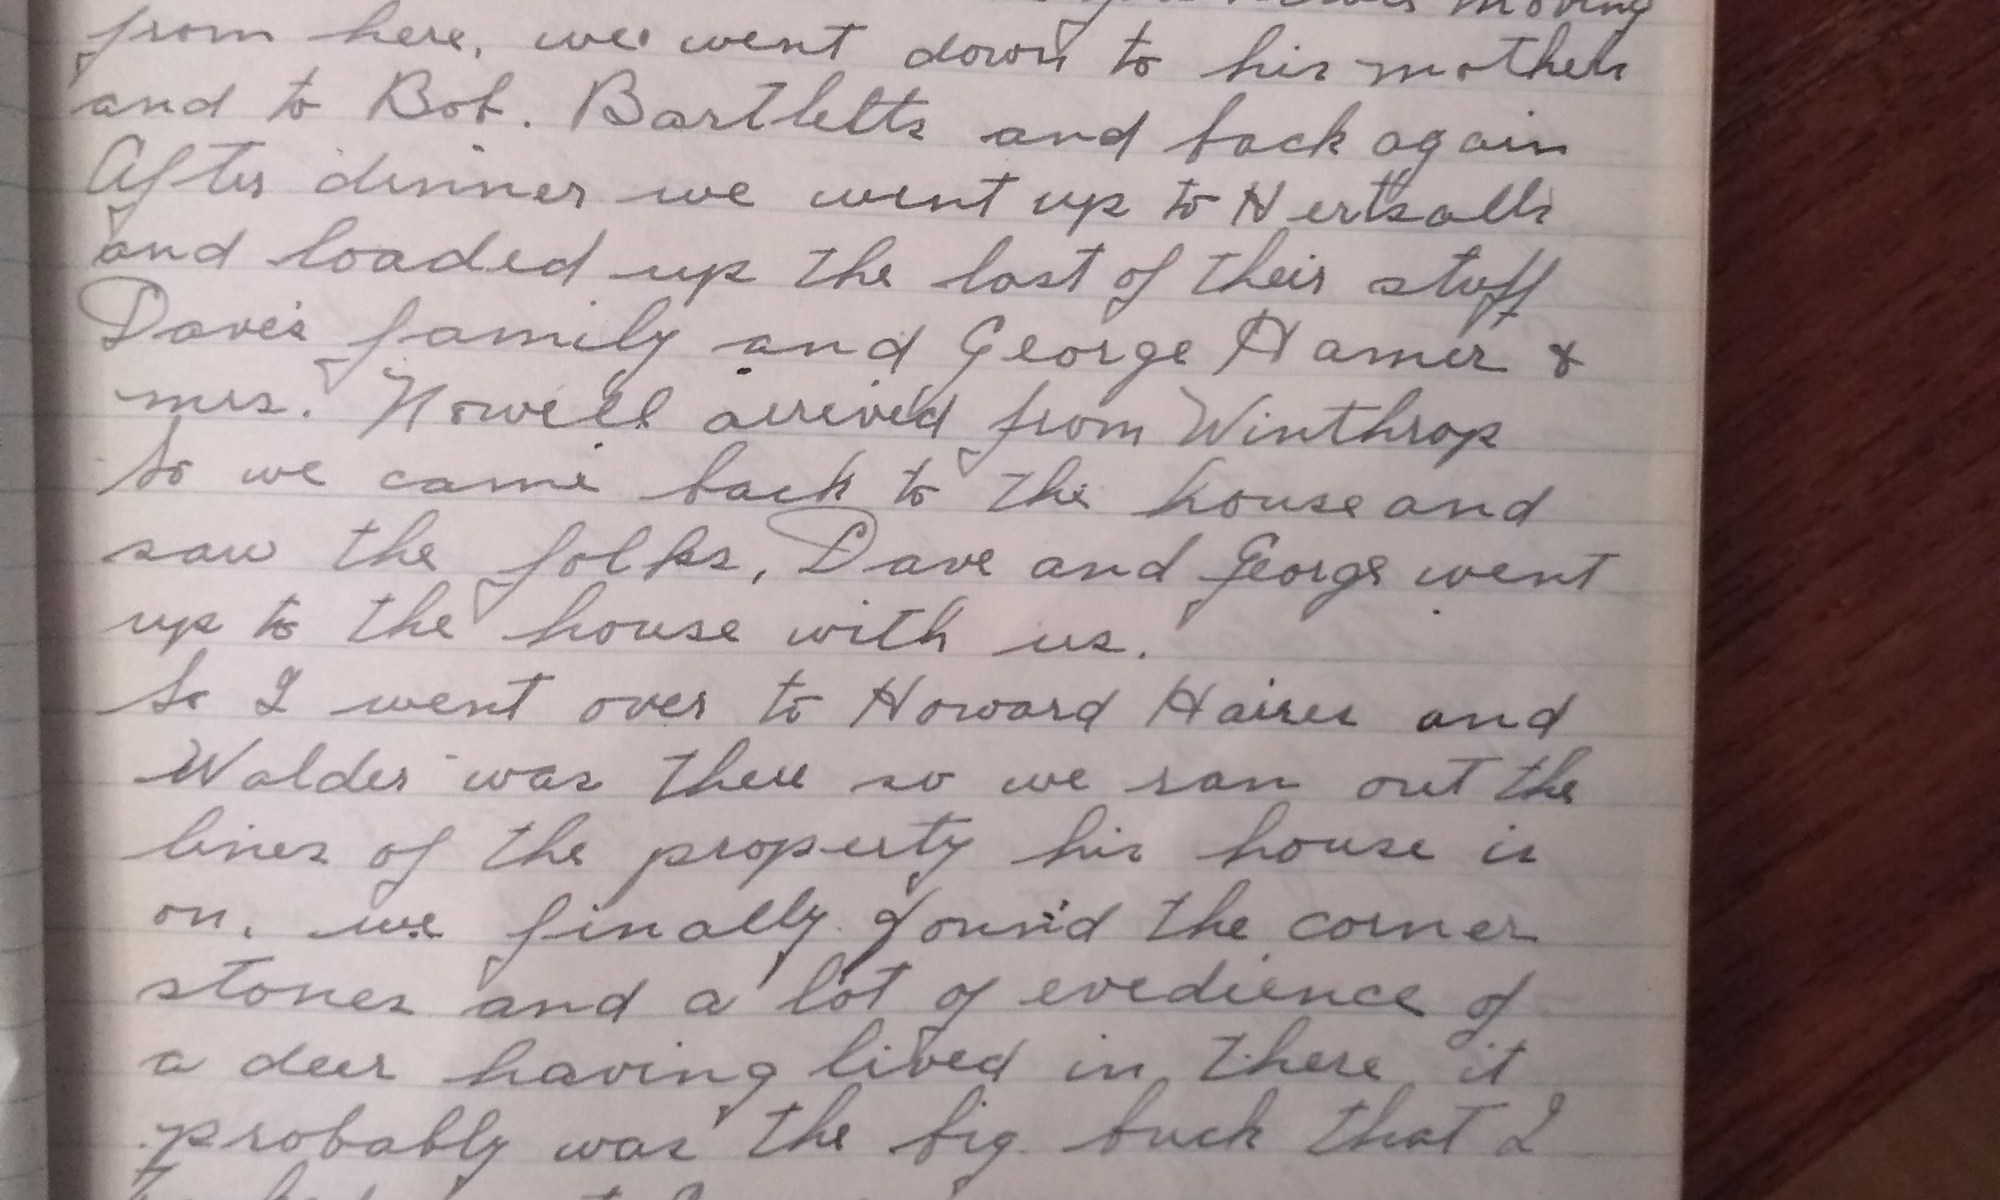 moving
from here, we went down to his mothers
and to Bob. Bartletts and back again
After dinner we went up to
and loaded up the last of their stuff
Dave's family and George Hamer &
mrs. Nowell arrived from Winthrop
So we came back to the house and
saw the folks, Dave and George went
up to the house with us.
So I went over to Howard Haires and
Walder was there so we ran out the
lines of the property his house is
on. we finally found the corner
stones and a lot of evedience of
a deer having lived in there it
probably was the big buck that I